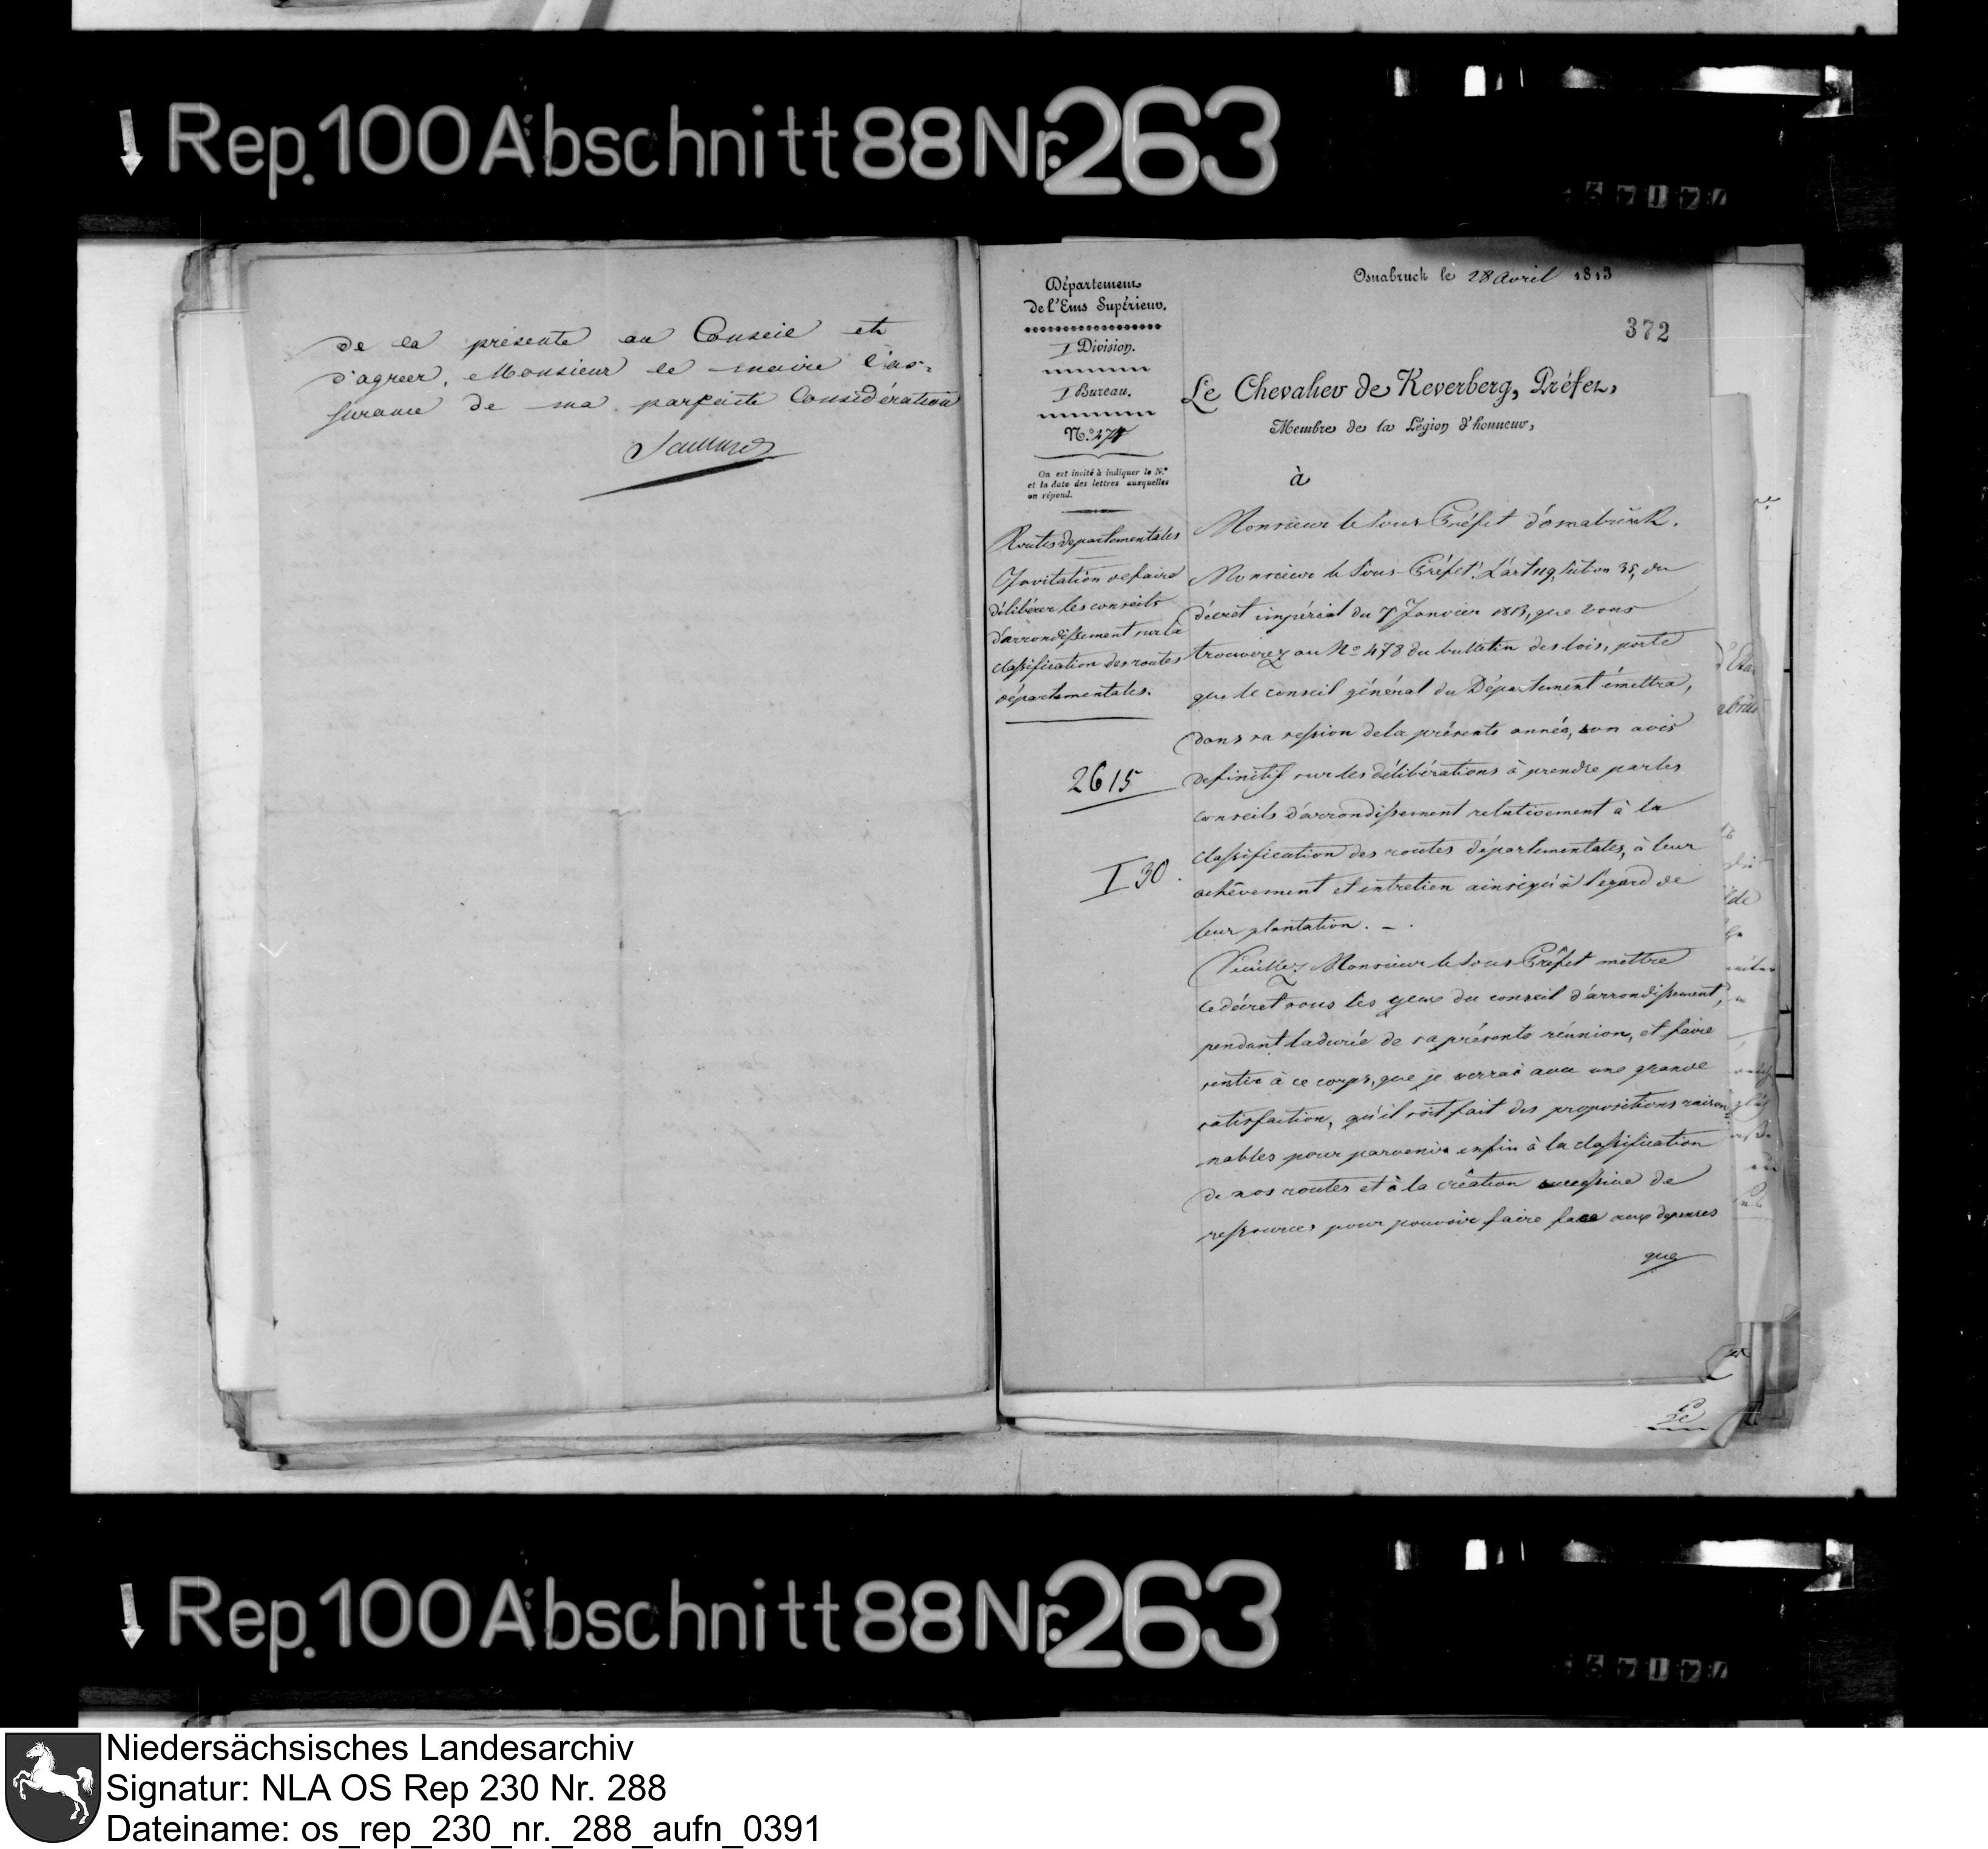 Rep. 100 Abschnitt 88 Nr. 263
de la présente au Conseil et
d'agreer, Monsieur le maire l'as-
surance de ma parfaite Considération
Département
de l'Ems Supérieur.
I Division.
I Bureau.
N.º
On est invité à indiquer le N.º
et la date des lettres auxquelles
on répond.
Routes departementales
Invitation de faire
délibérer les conseils
d'arrondissement sur la
classification des routes
départementales.
2615
I 30.
Osnabruck le 28 avril 1813
372
Le Chevalier de Keverberg, Préfet,
Membre de la Légion d'honneur,
à
Monsieur le Sous-Préfet d'osnabrück.
Monsieur le Sous-Préfet! L'art du
décret impérial du 7 Janvier 1813, que vous
trouverez au Nº 478 du bulletin des lois, porte
que le conseil général du Département émettra,
dans sa session de la présente année, son avis
definitif sur les délibérations à prendre par les
conseils d'arrondissement relativement à la
classification des routes départementales, à leur
achêvement et entretien ainsi qu'à l'egard de
leur plantation. -.
Veuillez Monsieur le Sous-Préfet mettre
ce décret sous les yeux du conseil d'arrondissement,
pendant la durée de sa présente réunion, et faire
sentir à ce corps, que je verrai avec une grande
satisfaction, qu'il soit fait des propositions raison-
nables pour parvenir enfin à la classification
de nos routes et à la création successive de
ressources pour pouvoir faire face aux depenses
que
Rep. 100 Abschnitt 88 Nr. 263
Niedersächsisches Landesarchiv
Signatur: NLA OS Rep 230 Nr. 288
Dateiname: os_rep_230_nr._288_aufn_0391